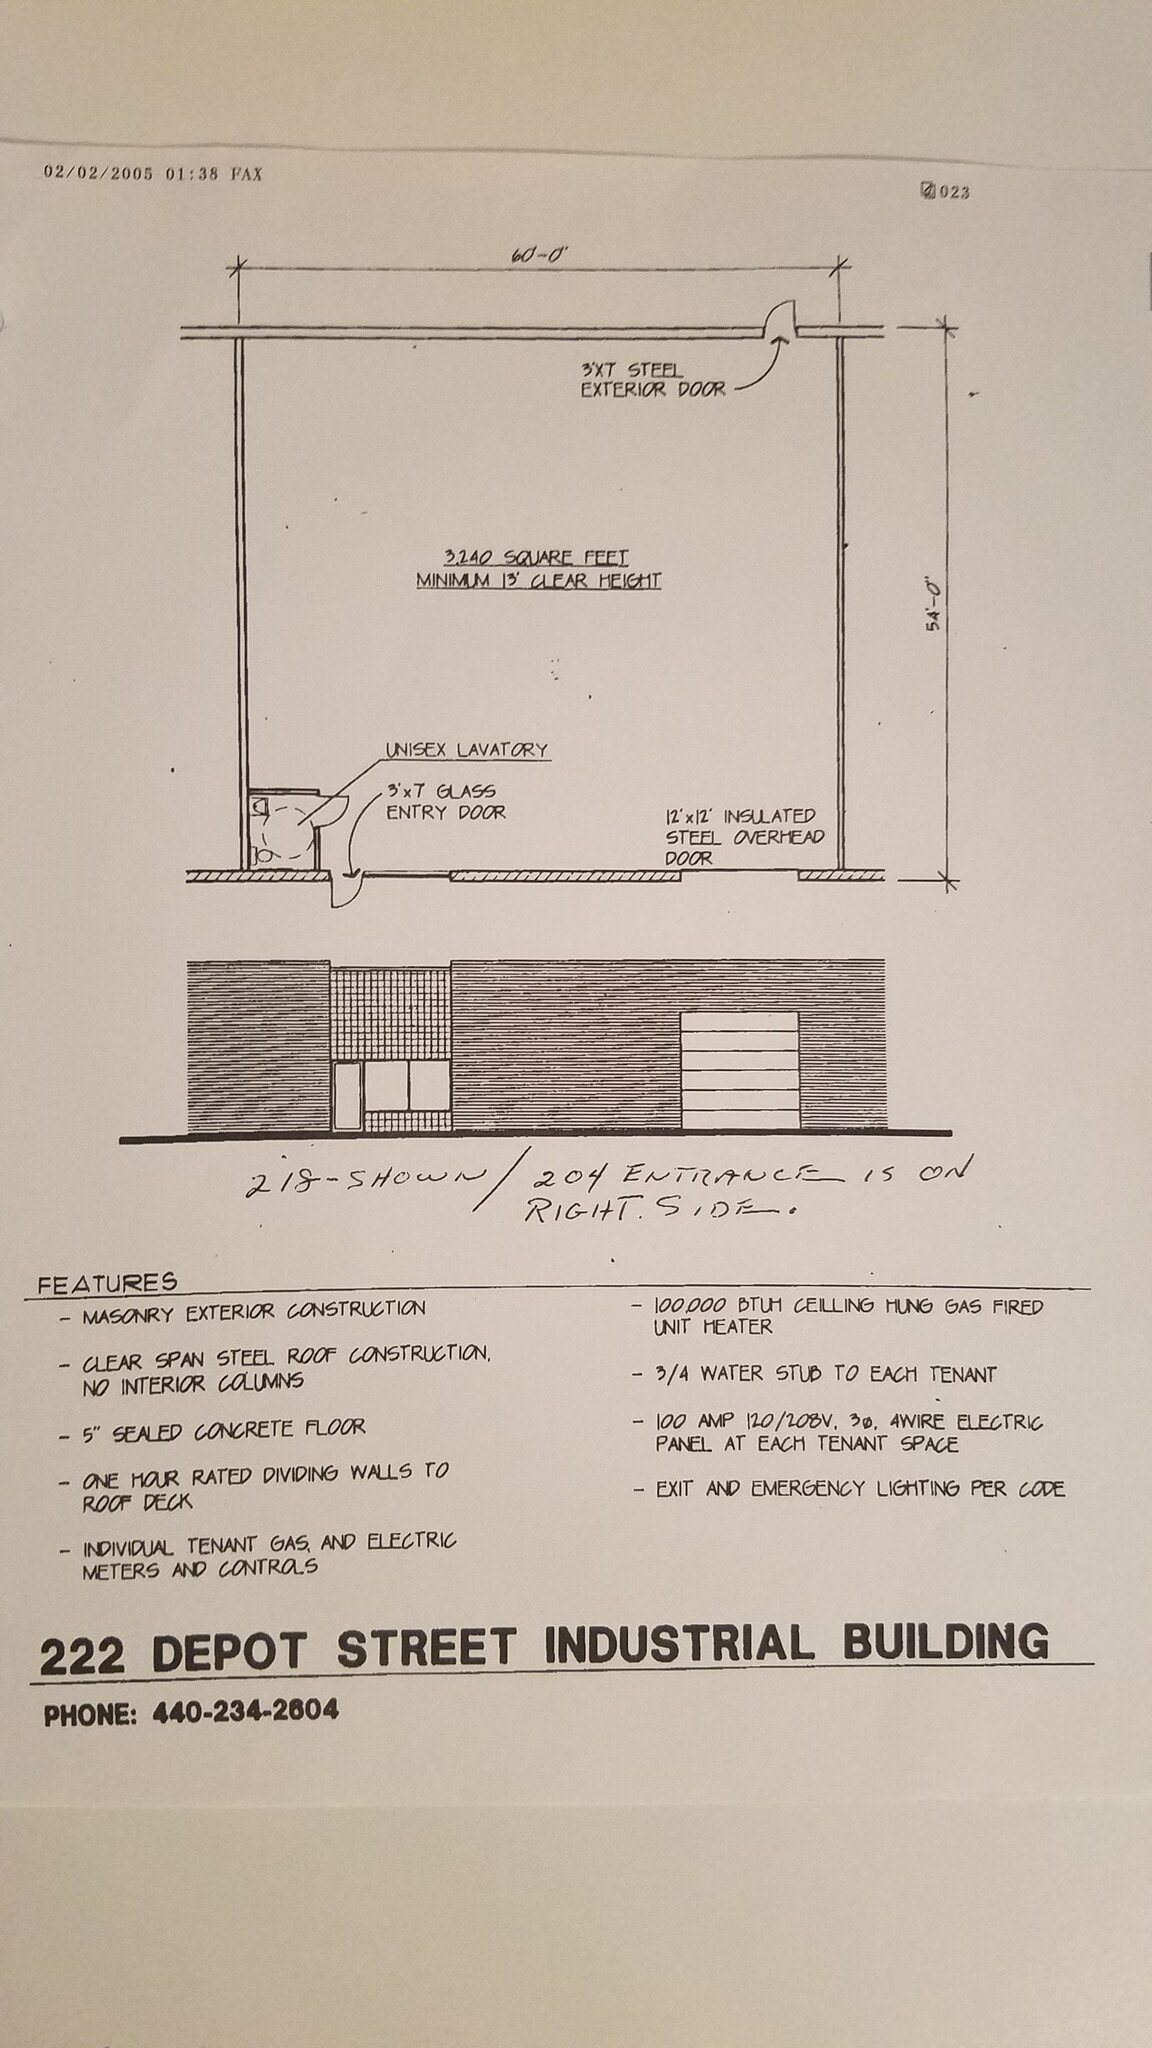 02/02/2005 01:38 FAX
023
60'-0"
3'X7' STEEL
EXTERIOR DOOR
3,240 SQUARE FEET
MINIMUM 13' CLEAR HEIGHT
54'-0"
UNISEX LAVATORY
3'x7' GLASS
ENTRY DOOR
12'x12' INSULATED
STEEL OVERHEAD
DOOR
218-SHOWN / 204 ENTRANCE IS ON
RIGHT SIDE.
FEATURES
- MASONRY EXTERIOR CONSTRUCTION
- CLEAR SPAN STEEL ROOF CONSTRUCTION,
NO INTERIOR COLUMNS
- 5" SEALED CONCRETE FLOOR
- ONE HOUR RATED DIVIDING WALLS TO
ROOF DECK
- INDIVIDUAL TENANT GAS, AND ELECTRIC
METERS AND CONTROLS
- 100,000 BTUH CEILLING HUNG GAS FIRED
UNIT HEATER
- 3/4 WATER STUB TO EACH TENANT
- 100 AMP 120/208V, 3ø, 4WIRE ELECTRIC
PANEL AT EACH TENANT SPACE
- EXIT AND EMERGENCY LIGHTING PER CODE
222 DEPOT STREET INDUSTRIAL BUILDING
PHONE: 440-234-2604